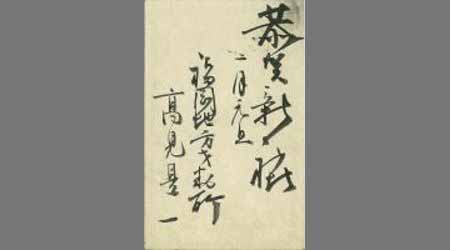 恭賀新
一月元旦
福岡地方才判所
高見是一